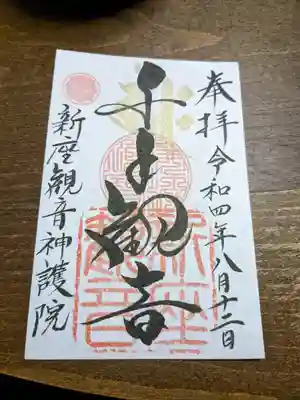 奉拝 令和四年八月十二日
千手観音
新座観音神護院